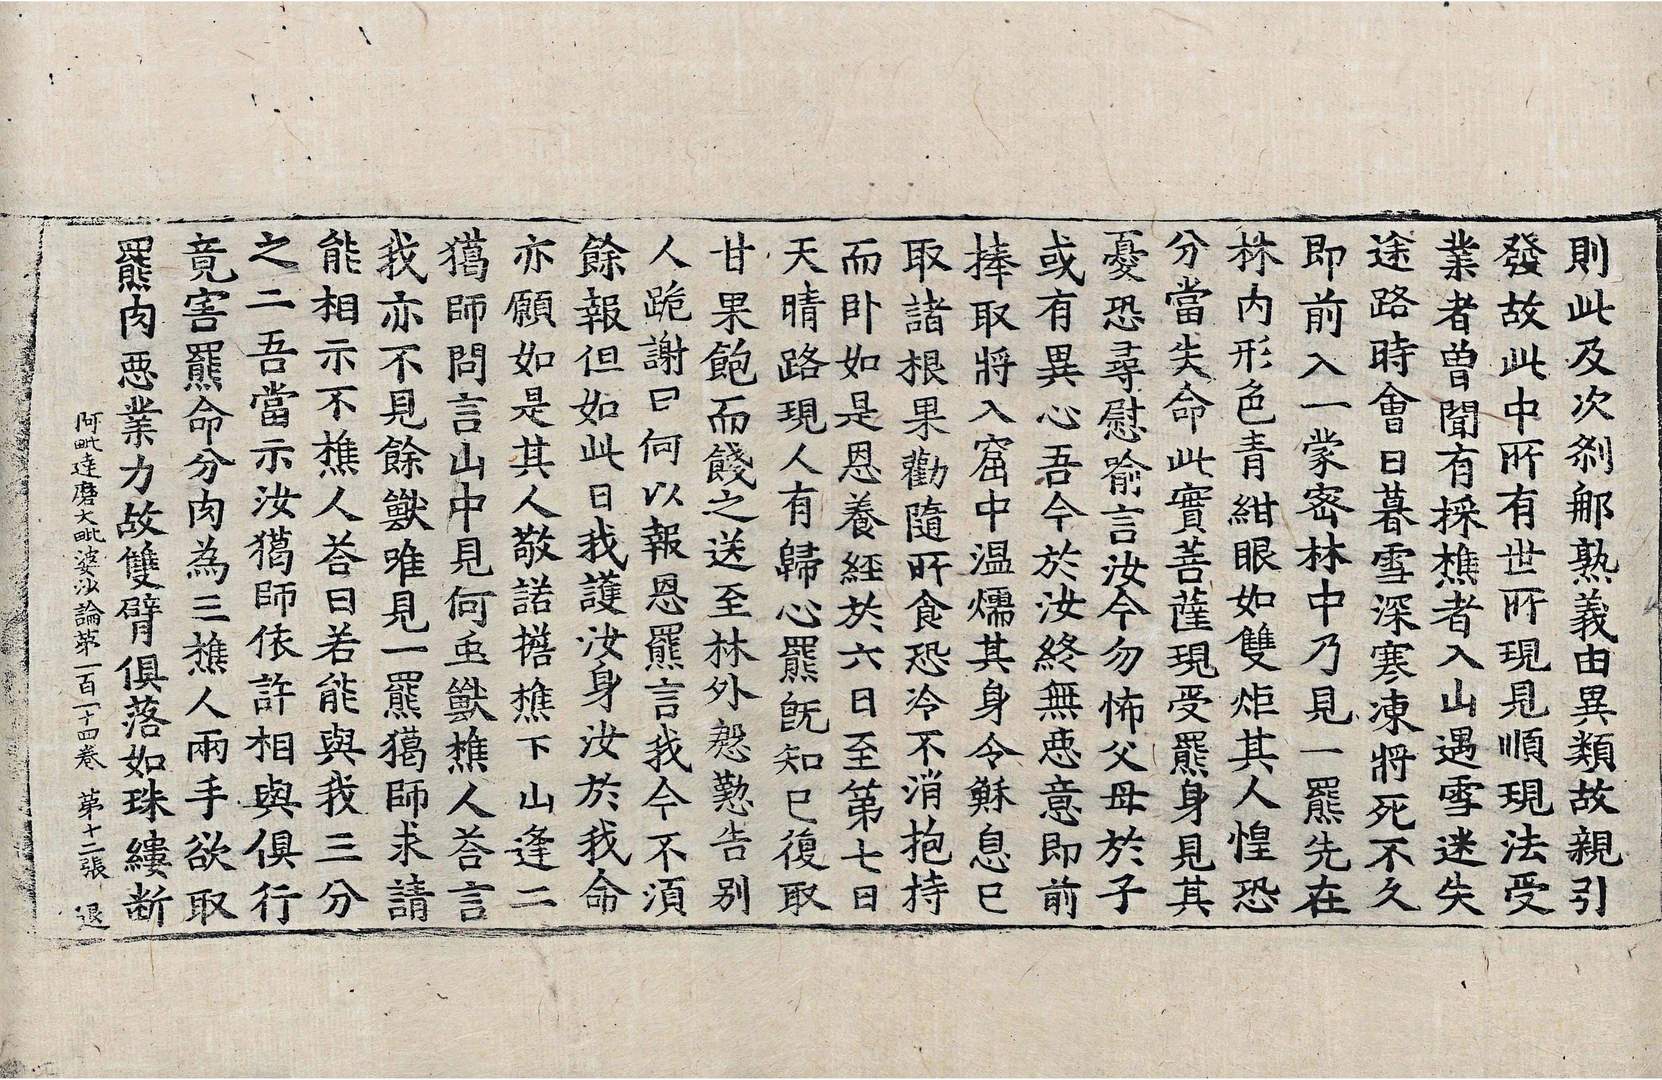 則此及次刹那熟義由異類故親引
發故此中所有世所現見順現法受
業者曾聞有採樵者入山遇雪迷失
途路時會日暮雪深寒凍將死不久
即前入一蒙密林中乃見一羆先在
林內形色青紺眼如雙炬其人惶恐
分當失命此實菩薩現受羆身見其
憂恐尋慰喻言汝今勿怖父母於子
或有異心吾今於汝終無惡意即前
捧取將入窟中温燸其身令穌息已
取諸根果勸隨所食恐冷不消抱持
而卧如是恩養經於六日至第七日
天晴路現人有歸心羆旣知已復取
甘果飽而餞之送至林外慇懃告別
人跪謝曰何以報恩羆言我今不須
餘報但如此日我護汝身汝於我命
亦願如是其人敬諾擔樵下山逢二
獵師問言山中見何䖝獸樵人荅言
我亦不見餘獸唯見一羆獵師求請
能相示不樵人荅曰若能與我三分
之二吾當示汝獵師依許相與俱行
竟害羆命分肉為三樵人兩手欲取
羆肉惡業力故雙臂俱落如珠縷斷
阿毗達磨大毗婆沙論第一百一十四卷 第十二張 退